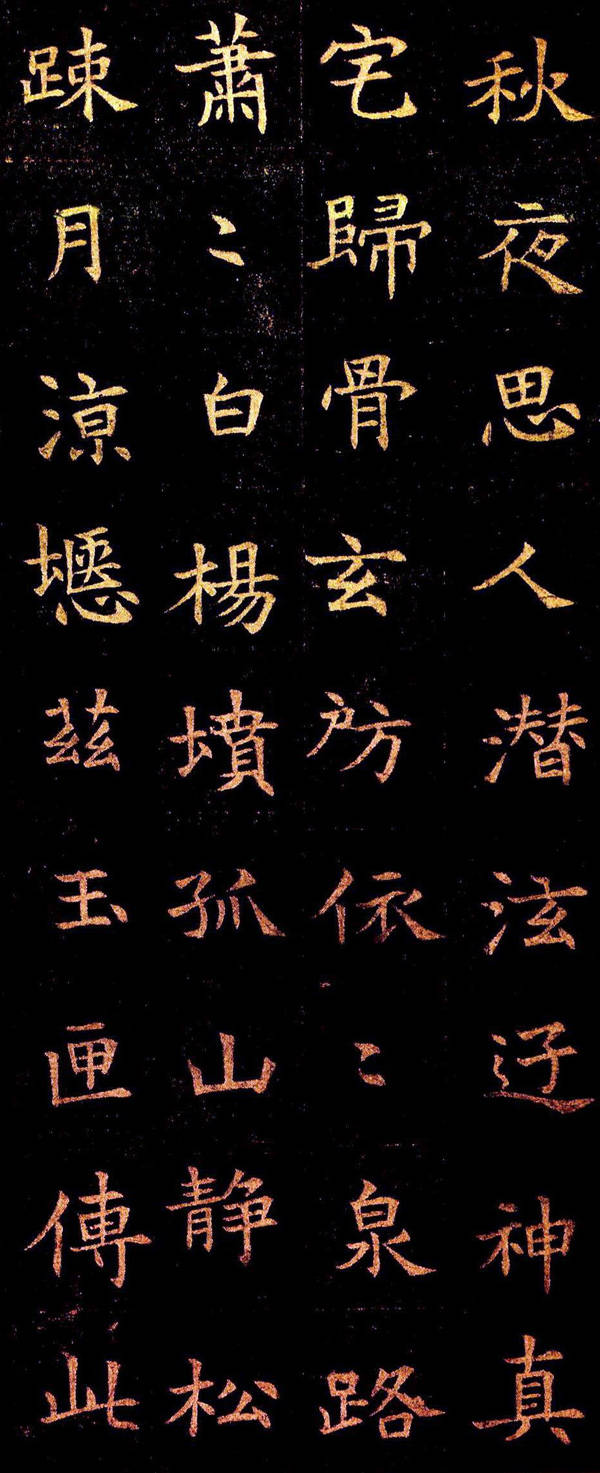 秋夜思人潜泫迁神真
宅歸骨玄房依〻泉路
蕭〻白楊墳孤山静松
踈月涼瘞茲玉匣傳此